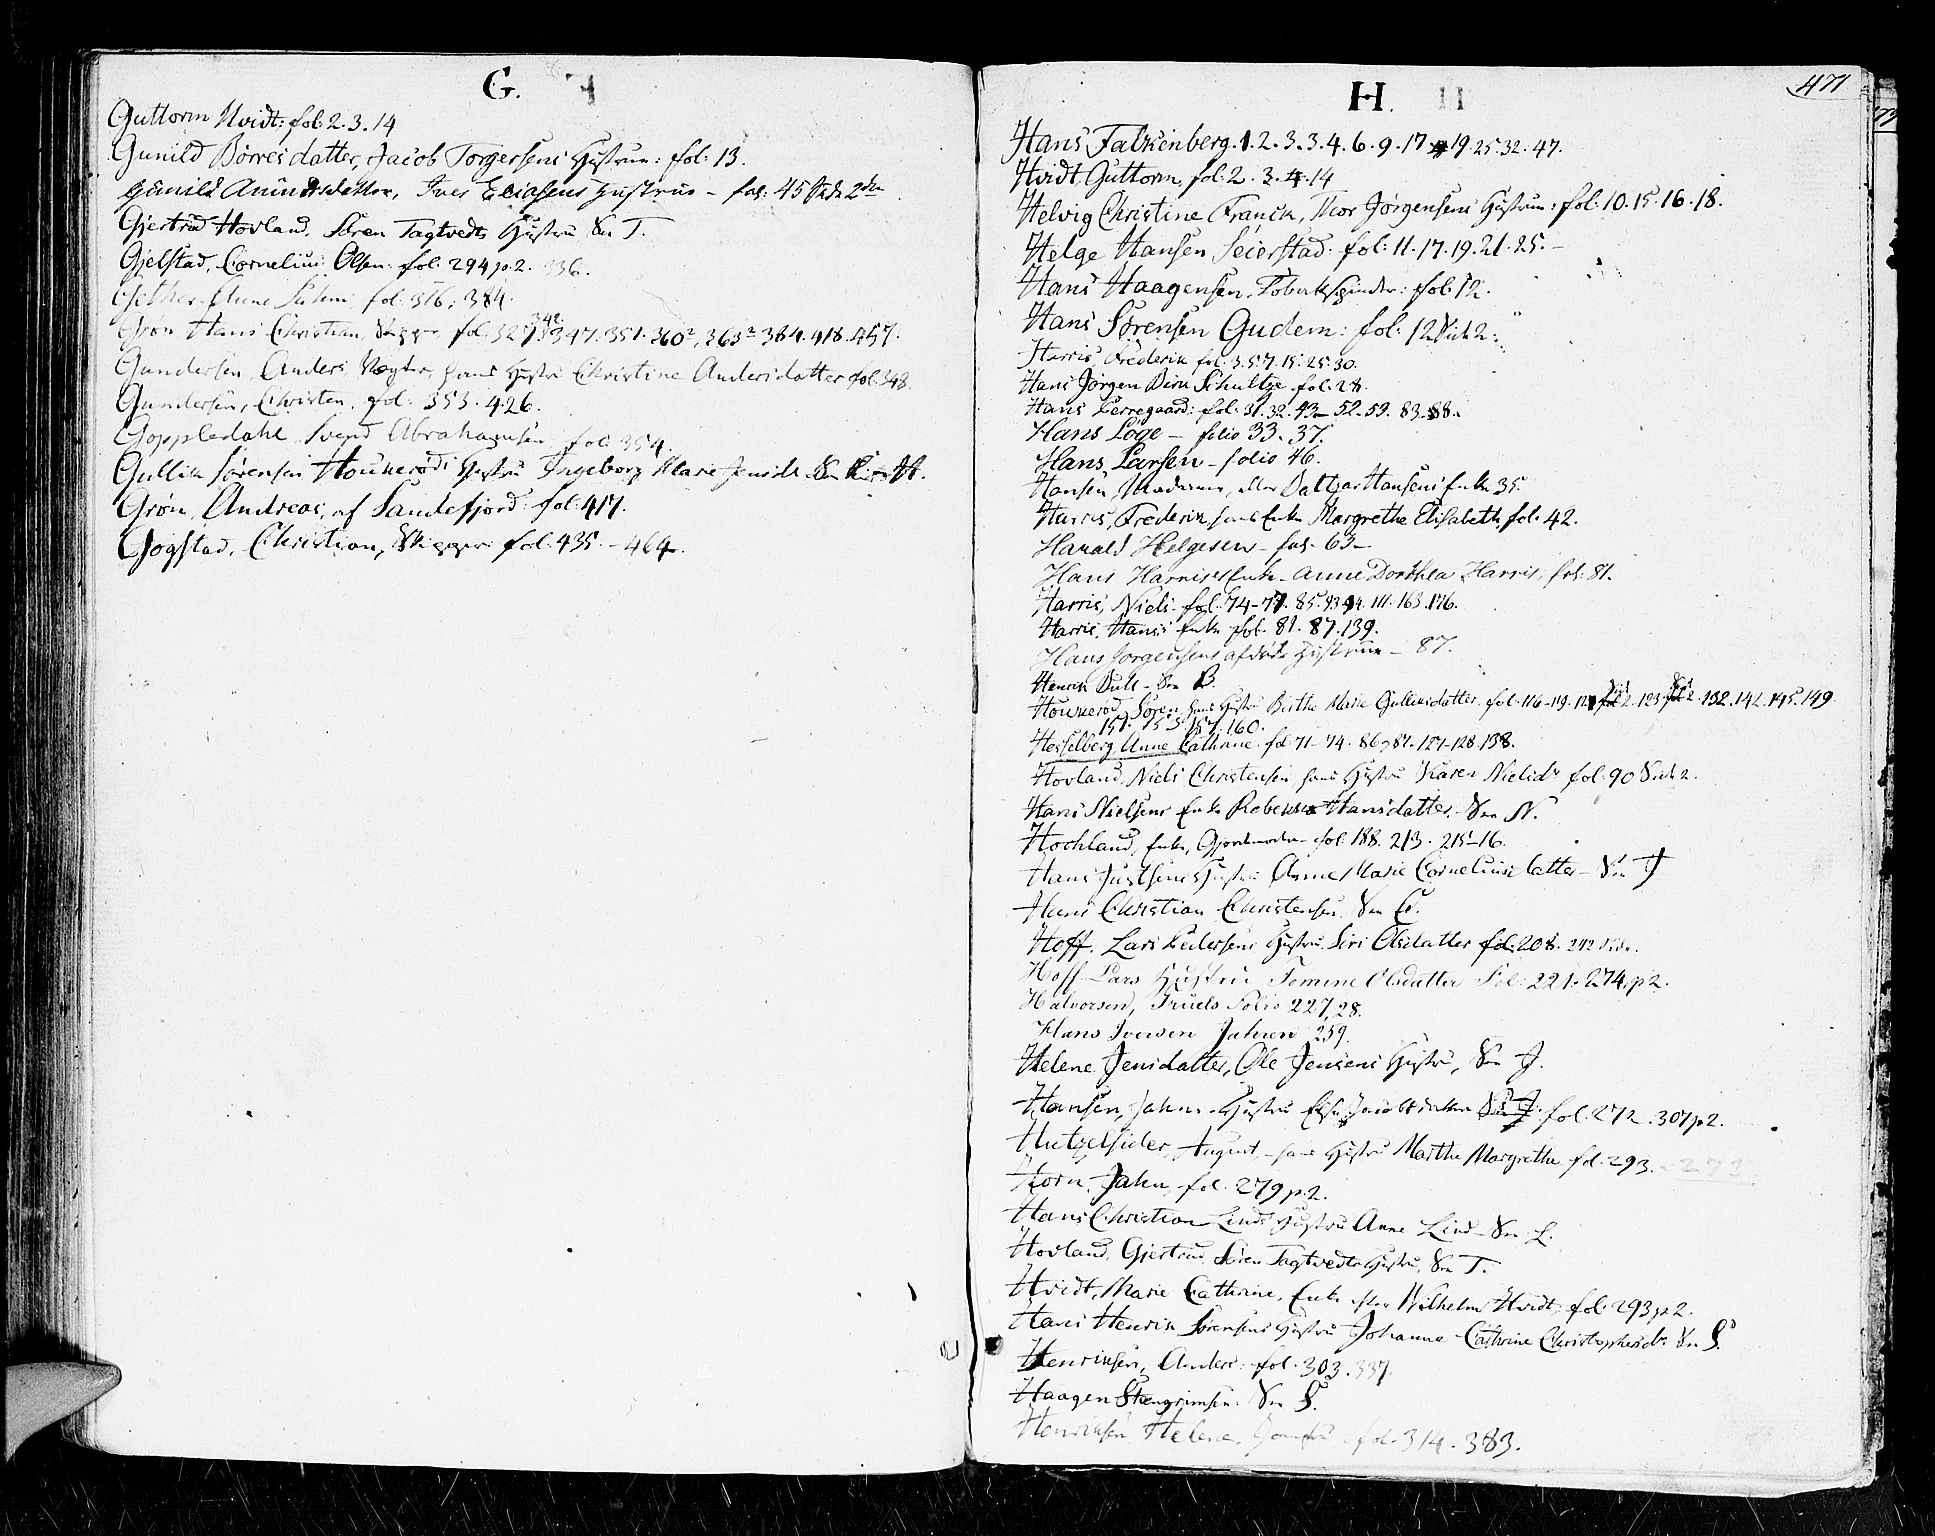 G.
Guttorm Hvidt: fol: 2. 3. 14
Gunild Börresdatter, Jacob Torgersens Hustrue: fol: 13.
Gunild Amundsdatter, Ives Eliasens Hustrue – fol: 45 Side 2den
Gjertrud Hovland, Sören Tagtvedts Hustru See T.
Gjelstad, Cornelius Olsen. fol. 294 p. 2. 336.
fol. 376. 384.
Grön Hans Christian, Skipper fol. 327. 342. 347. 351. 360². 363² 384. 418. 457.
Gundersen, Anders Vægter, hans Hustru Christine Andersdatter fol. 348.
Gundersen, Christen, fol. 353. 426.
Goppledahl, Svend Abrahamsen, fol. 354.
Gullik Sörensen Houkeröds Hustru Ingeborg Marie Jensdr See H.
Grön, Andreas, af Sandefjord fol. 417.
Gogstad, Christian, Skipper fol. 435. – 464.
H.
471
Hans Falkenberg. 1. 2. 3. 3. 4. 6. 9. 17 19. 25. 32. 47.
Hvidt Guttorm, fol: 2. 3. 4. 14
Helvig Christine Franck, Thor Jörgensens Hustrue: fol: 10. 15. 16. 18.
Helge Hansen Seierstad. fol: 11. 17. 19. 21. 25. –
Hans Haagensen, Tobakspinder: fol: 12.
Hans Sörensen Gudem: fol. 12 Side 2:
Harris, Frederik fol. 3. 5. 7. 15. 25. 30.
Hans Jörgen Dirk Schultze. fol. 28.
Hans Perregaard: fol. 31. 32. 43 – 52. 59. 83. 88.
Hans Löge – folio 33. 37.
Hans Larsen – folio 46.
Hansen, Madame, eller Baltzar Hansens Enke 35.
Harris, Frederik hans Enke Margrethe Elisabeth fol. 42.
Harald Helgesen – fol. 63 –
Hans Harrises Enke – Anne Dorthea Harris, fol: 81.
Harris, Niels. fol. 74 – 77. 85. 93 94. 111. 163. 176.
Harris, Hans's Enke fol. 81. 87. 139.
Hans Jorgensens afdöde Hustrue – 87.
Henrik Bull – See B.
Houkeröd, Sören, hans Hustru Birthe Marie Gulliksdatter. fol. 116 – 119. 121 Side 2. 123 Side 2. 132. 142. 145. 149.
151. 153. 157. 160.
Hesselberg, Anne Cathrine. fol 71 – 74. 86. 87. 127 – 128. 138.
Hovland, Niels Christensen hans Hustru Karen Nielsdr fol. 90 Side 2.
Hans Nielsens Enke Rebekka Hansdatter. See N.
Hochland, Enke, Gjordmoder fol. 188. 213. 215 – 16.
Hans Justsens Hustru Anne Marie Corneliusdatter – See J
Hans Christian Christensen. See C.
Hoff. Lars Pedersens Hustru Siri Olsdatter fol: 208. 242
Hoff Lars Hustrue Tomine Olsdatter Fol: 221. 274, p 2.
Halvorsen, Truels Folio 227, 28.
Hans Iversen Jahren 259.
Helene Jensdatter, Ole Jensens Hustru, See J.
Hansen, Jahns Hustru Else Jacobsdatter See J. fol. 272. 307 p. 2.
Hutzelsider, August, – hans Hustru Marthe Margrethe fol. 293. – 273
Horn, Jahn, fol. 279 p. 2.
Hans Christian Linds Hustru Anne Lind – See L.
Hovland, Gjertrud, Sören Tagtvedts Hustru, See T.
Hvidt, Marie Cathrine, Enke efter Wilhelm Hvidt, fol. 293 p 2.
Hans Henrik Sörensens Hustru Johanne Cathrine Christophersdr See S.
Henriksen, Anders: fol. 303. 337.
Haagen Stengrimsen. See S.
Henriksen Helene, Jomfru fol. 314. 383.